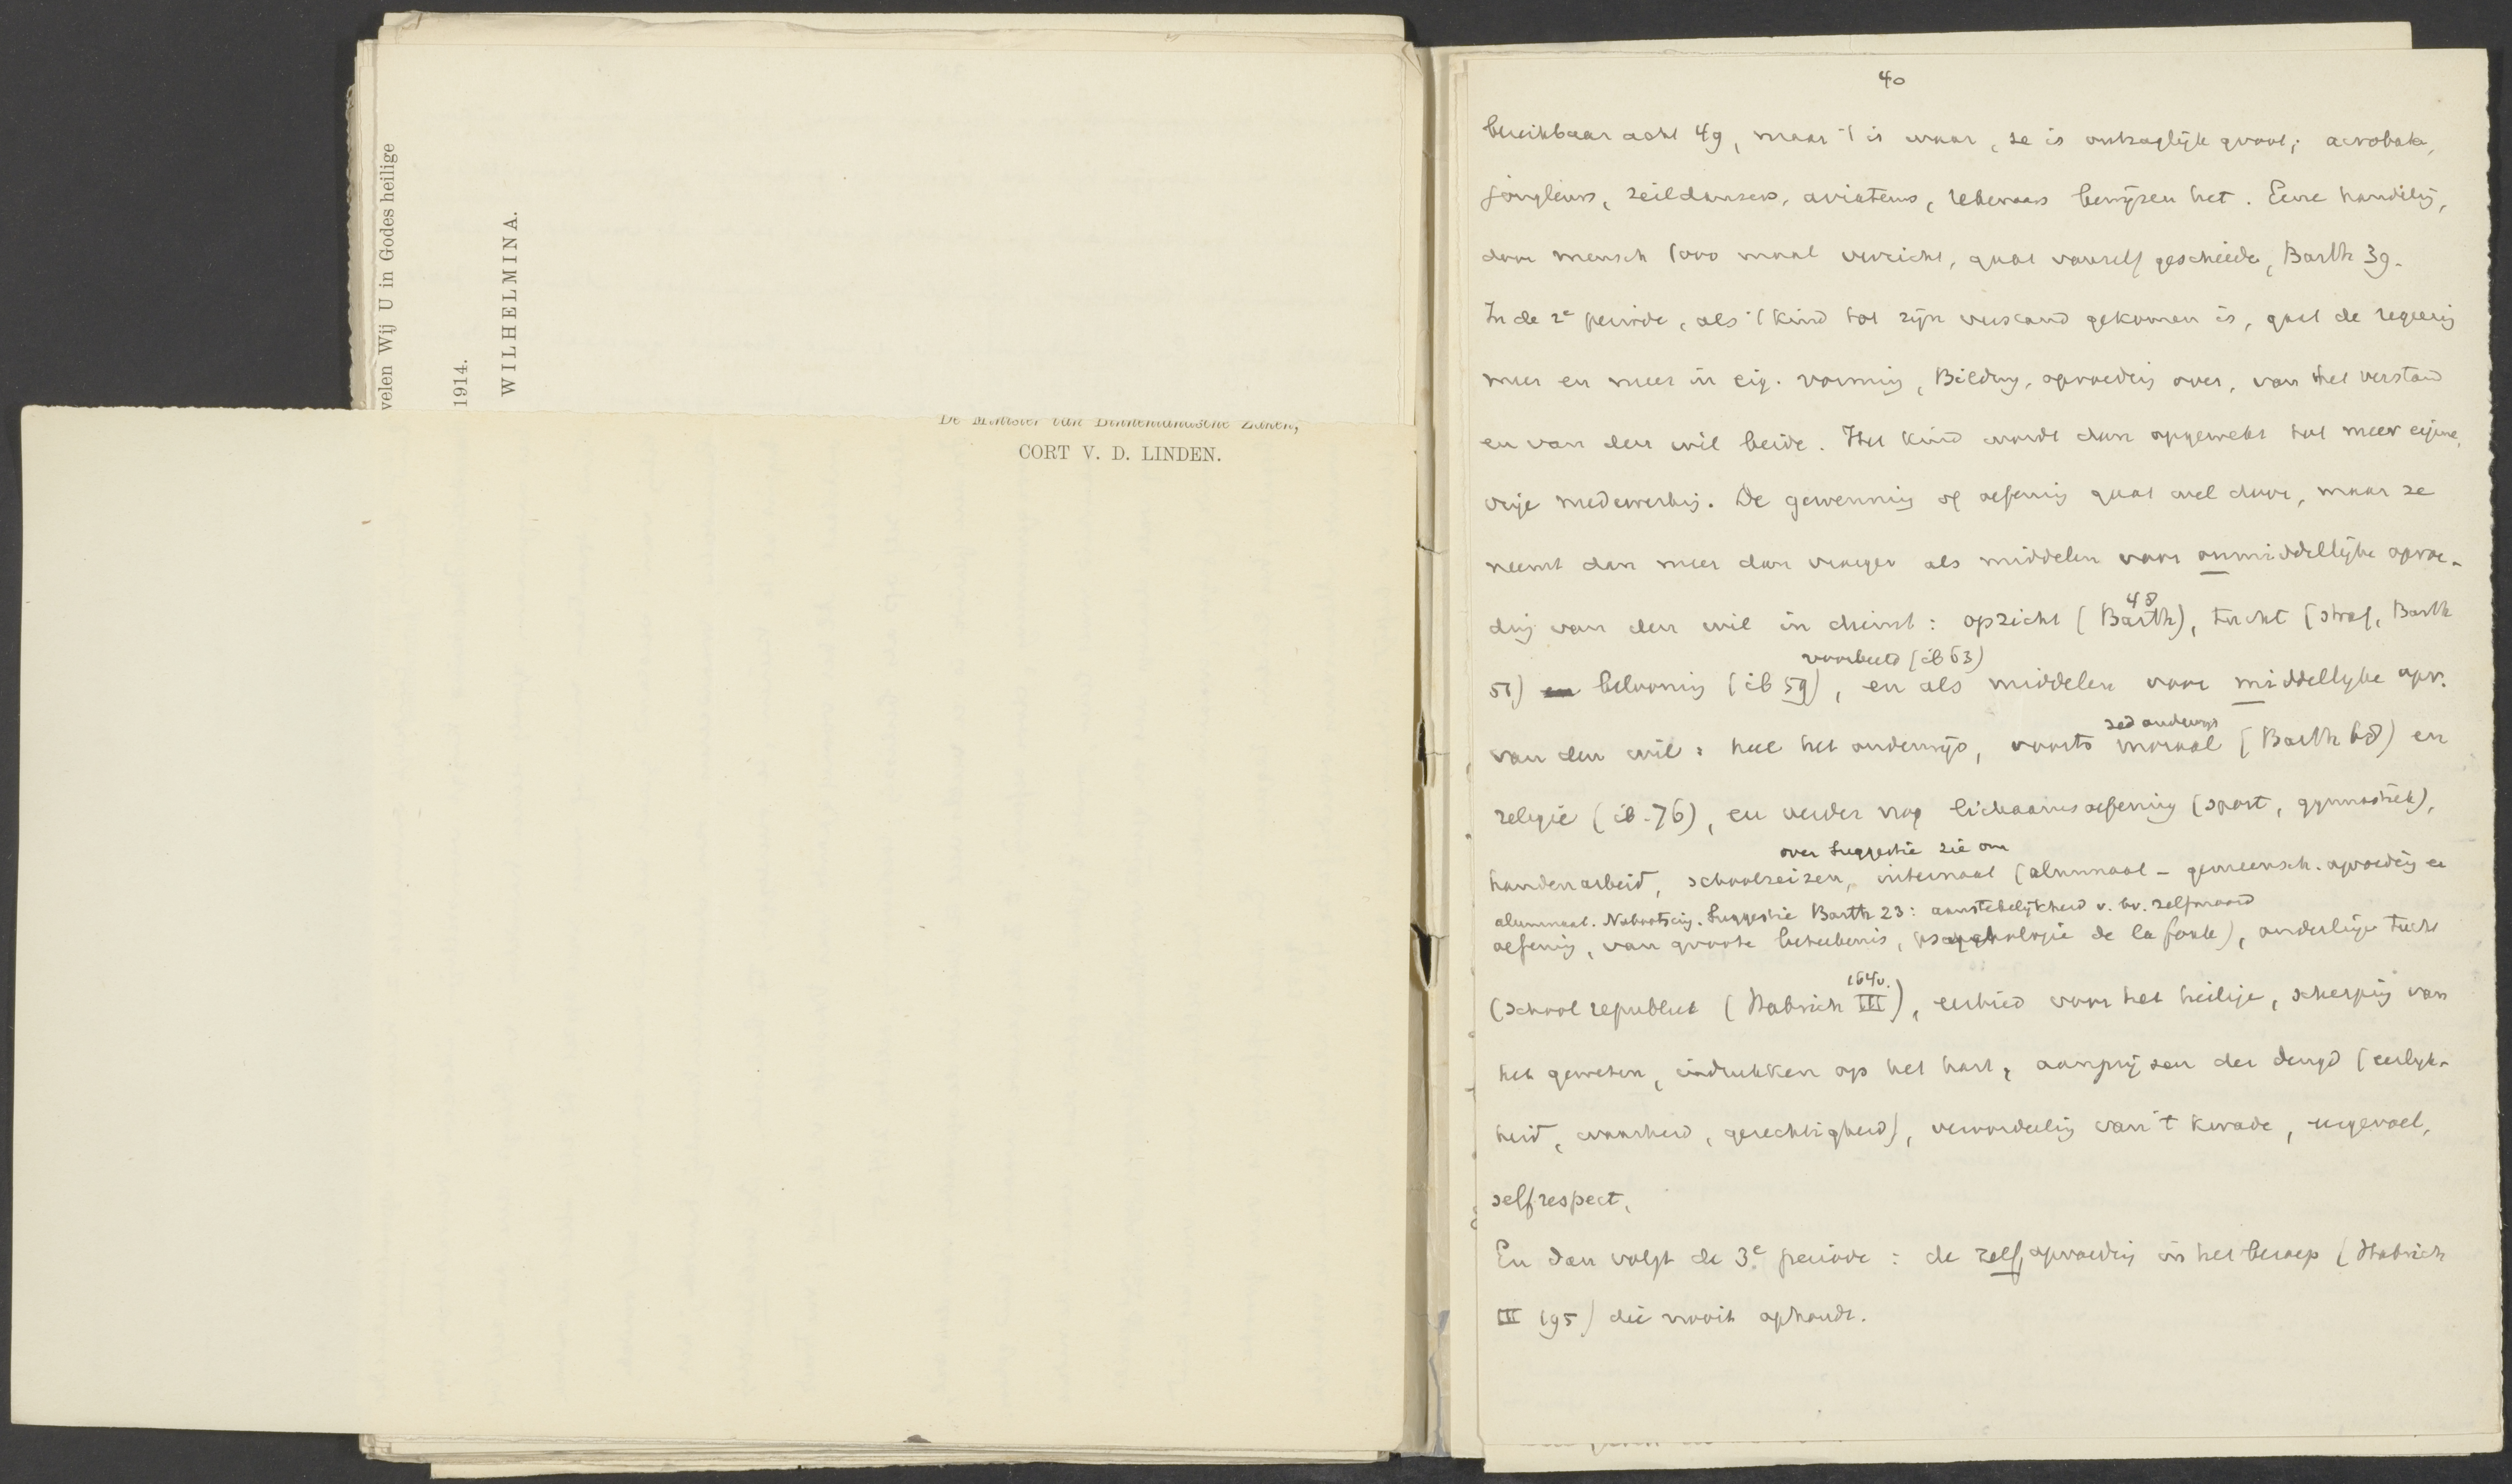 velen Wij U in Godes heilige
1914.
WILHELMINA.
De Minister van Binnenlandsche Zaken,
CORT V. D. LINDEN.
40
bereikbaar acht 49, maar 't is waar, ze is ontzaglijk groot; acrobate,
jongleurs, zeildansers, aviateurs, rekenaars bewijzen het. Eene handeling,
door mensch 1000 maal verricht, gaat vanzelf geschiede, Barth 39.
In de 2e periode, als 't kind tot zijn verstand gekomen is, gaat de regeering
meer en meer in eig. vorming, Bildung, opvoeding over, van het verstand
en van den wil beide. Het kind wordt dan opgewekt tot meer eigene,
vrije medewerking. De gewenning of oefening gaat wel door, maar ze
neemt dan meer dan vroeger als middelen voor onmiddellijke opvoe-
ding van den wil in dienst: opzicht (Barth 48), tucht (straf, Barth
51) en belooning (ib 59), voorbeeld (ib 63) en als middelen voor middellijke opv.
van den wil: heel het onderwijs, voorts moraal zed onderwijs (Barth 68) en
religie (ib. 76), en verder nog lichaamsoefening (sport, gymnastiek),
over Suggestie zie om
handenarbeid, schoolreizen, internaat (alumnaat - gemeensch. opvoeding en
alumnaat. Nabootsing. Suggestie Barth 23: aanstekelijkheid v. bv. zelfmoord
oefening, van groote beteekenis, psychologie de la foule), onderlinge tucht
(school republiek (Habrich III 164v.), eerbied voor het heilige, scherping van
het geweten, indrukken op het hart, aanprijzen der deugd (eerlijk-
heid, waarheid, gerechtigheid), veroordeeling van 't kwade, eergevoel,
selfrespect,
En dan volgt de 3e periode: de zelfopvoeding in het beroep (Habrich
III 195) die nooit ophoudt.